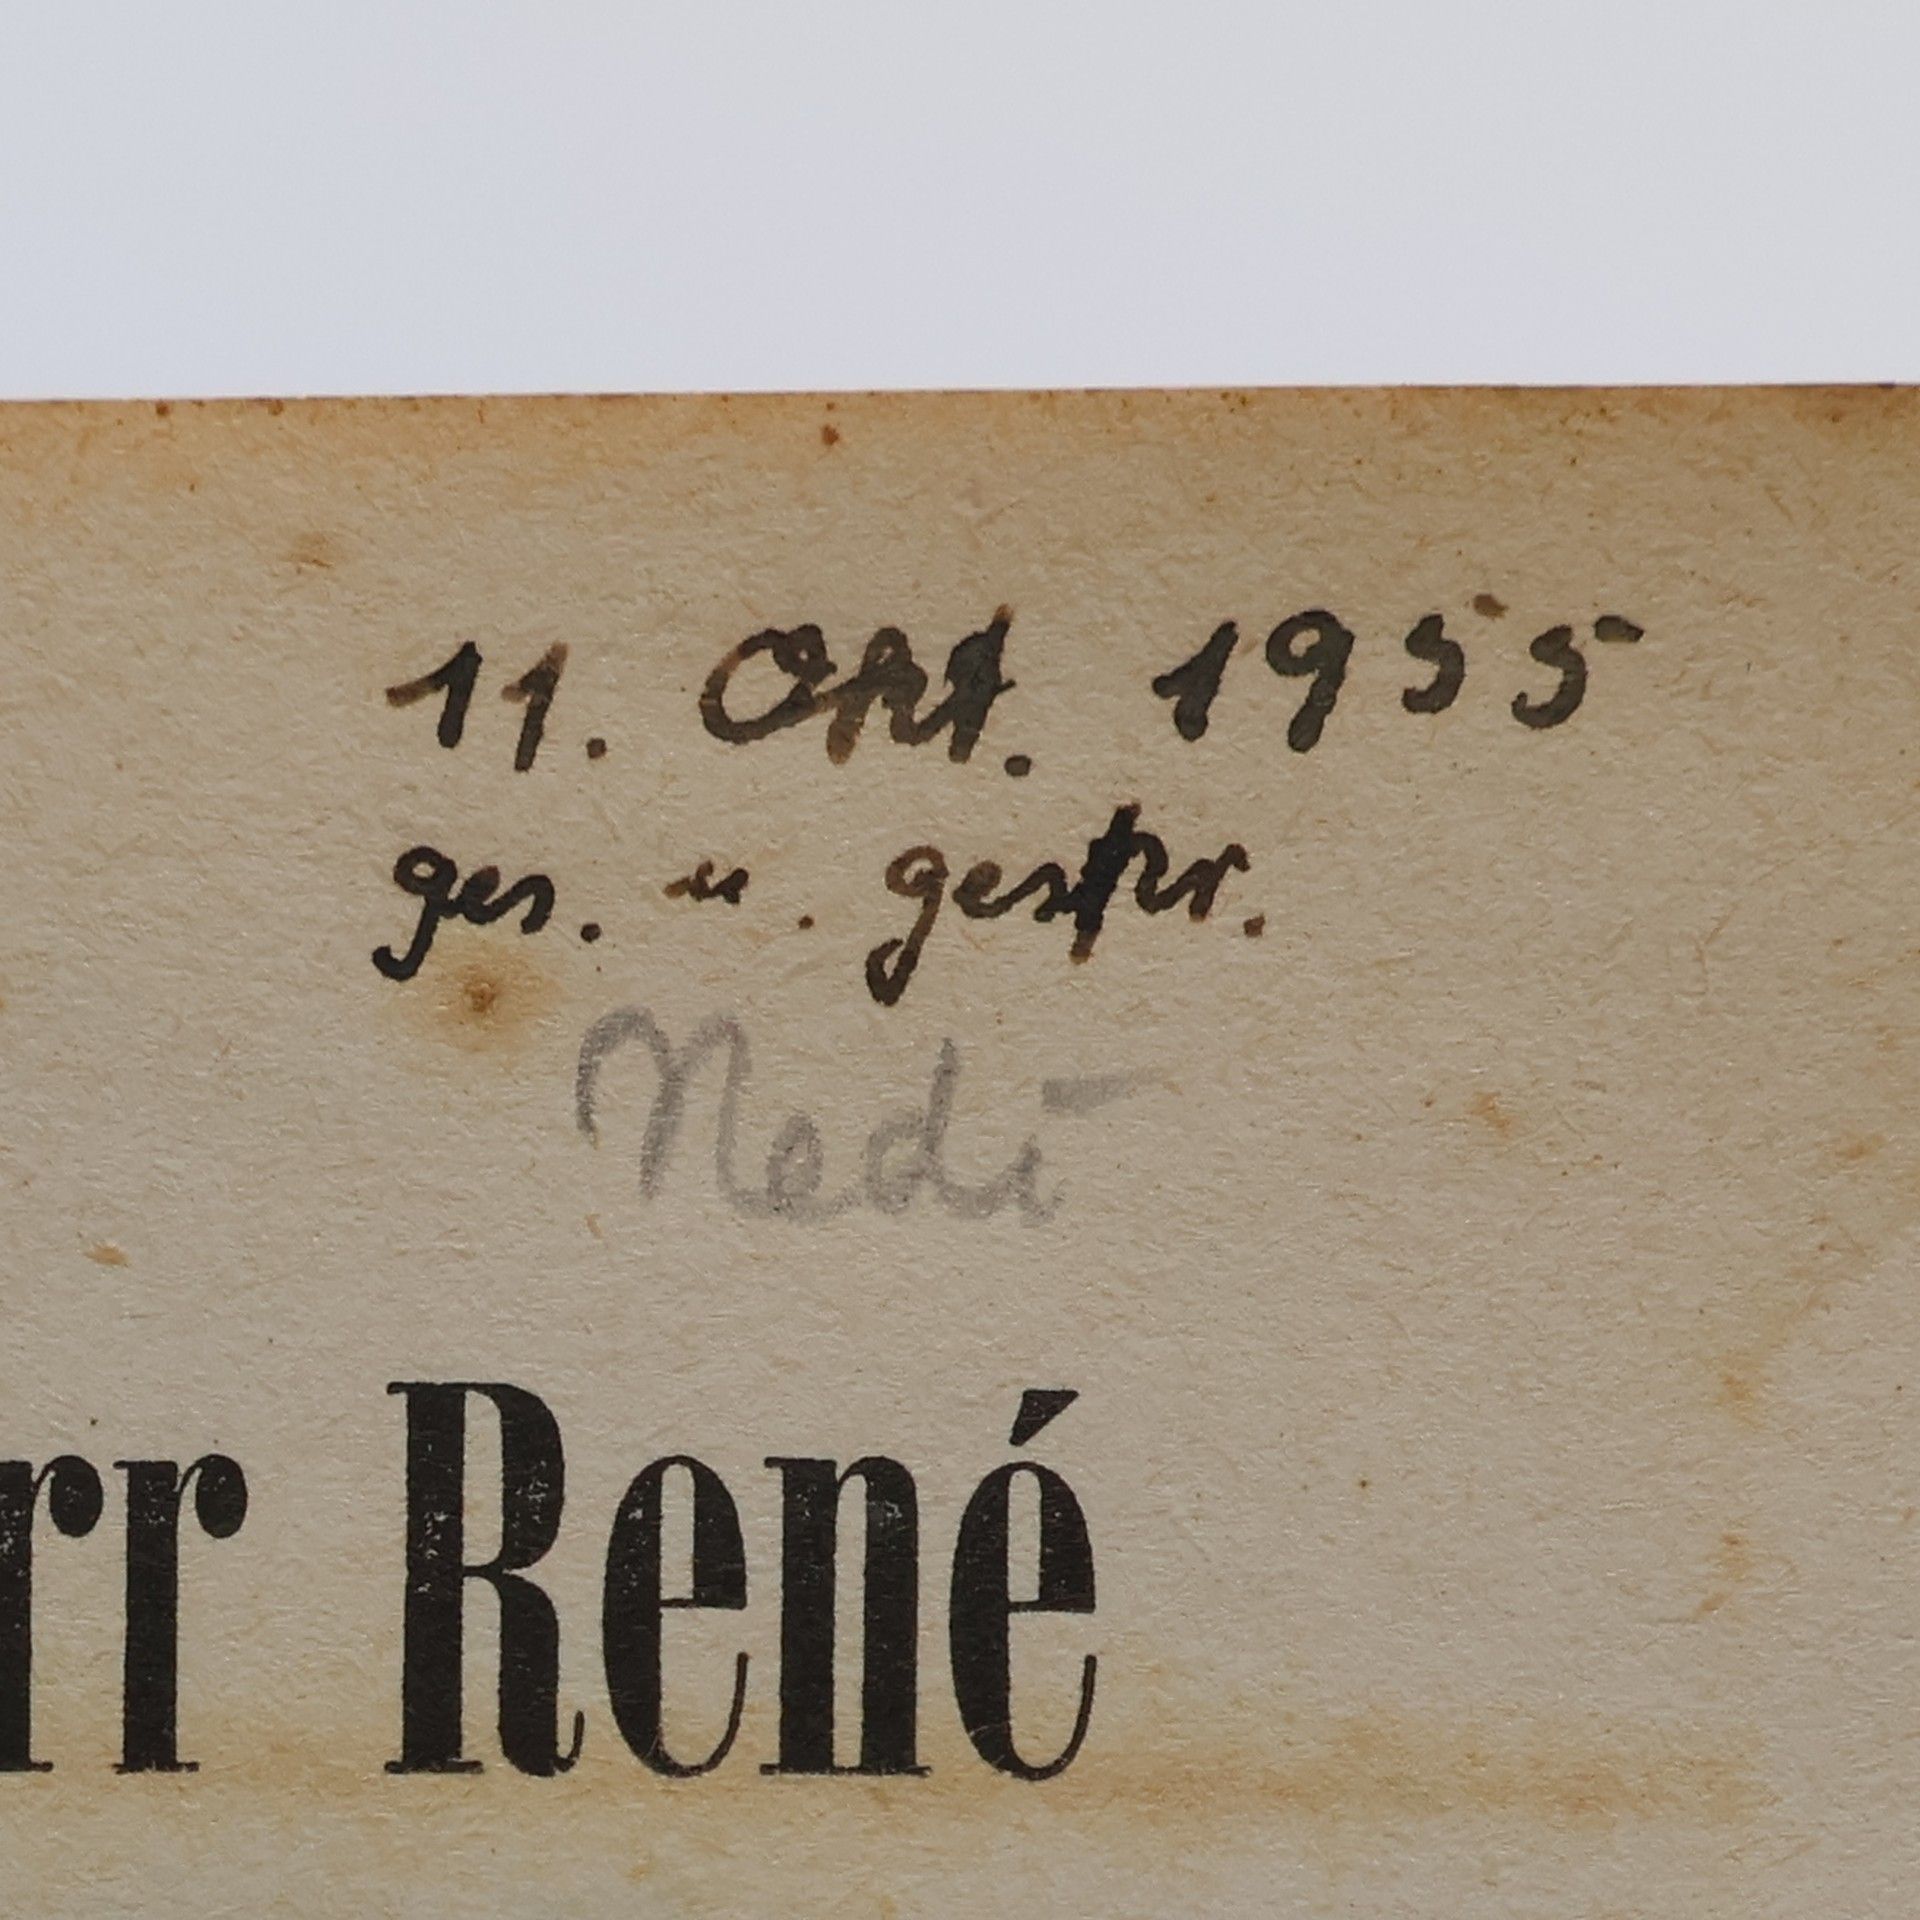 11. Okt. 1955
ges. u. gespr.
Nedi
rr René